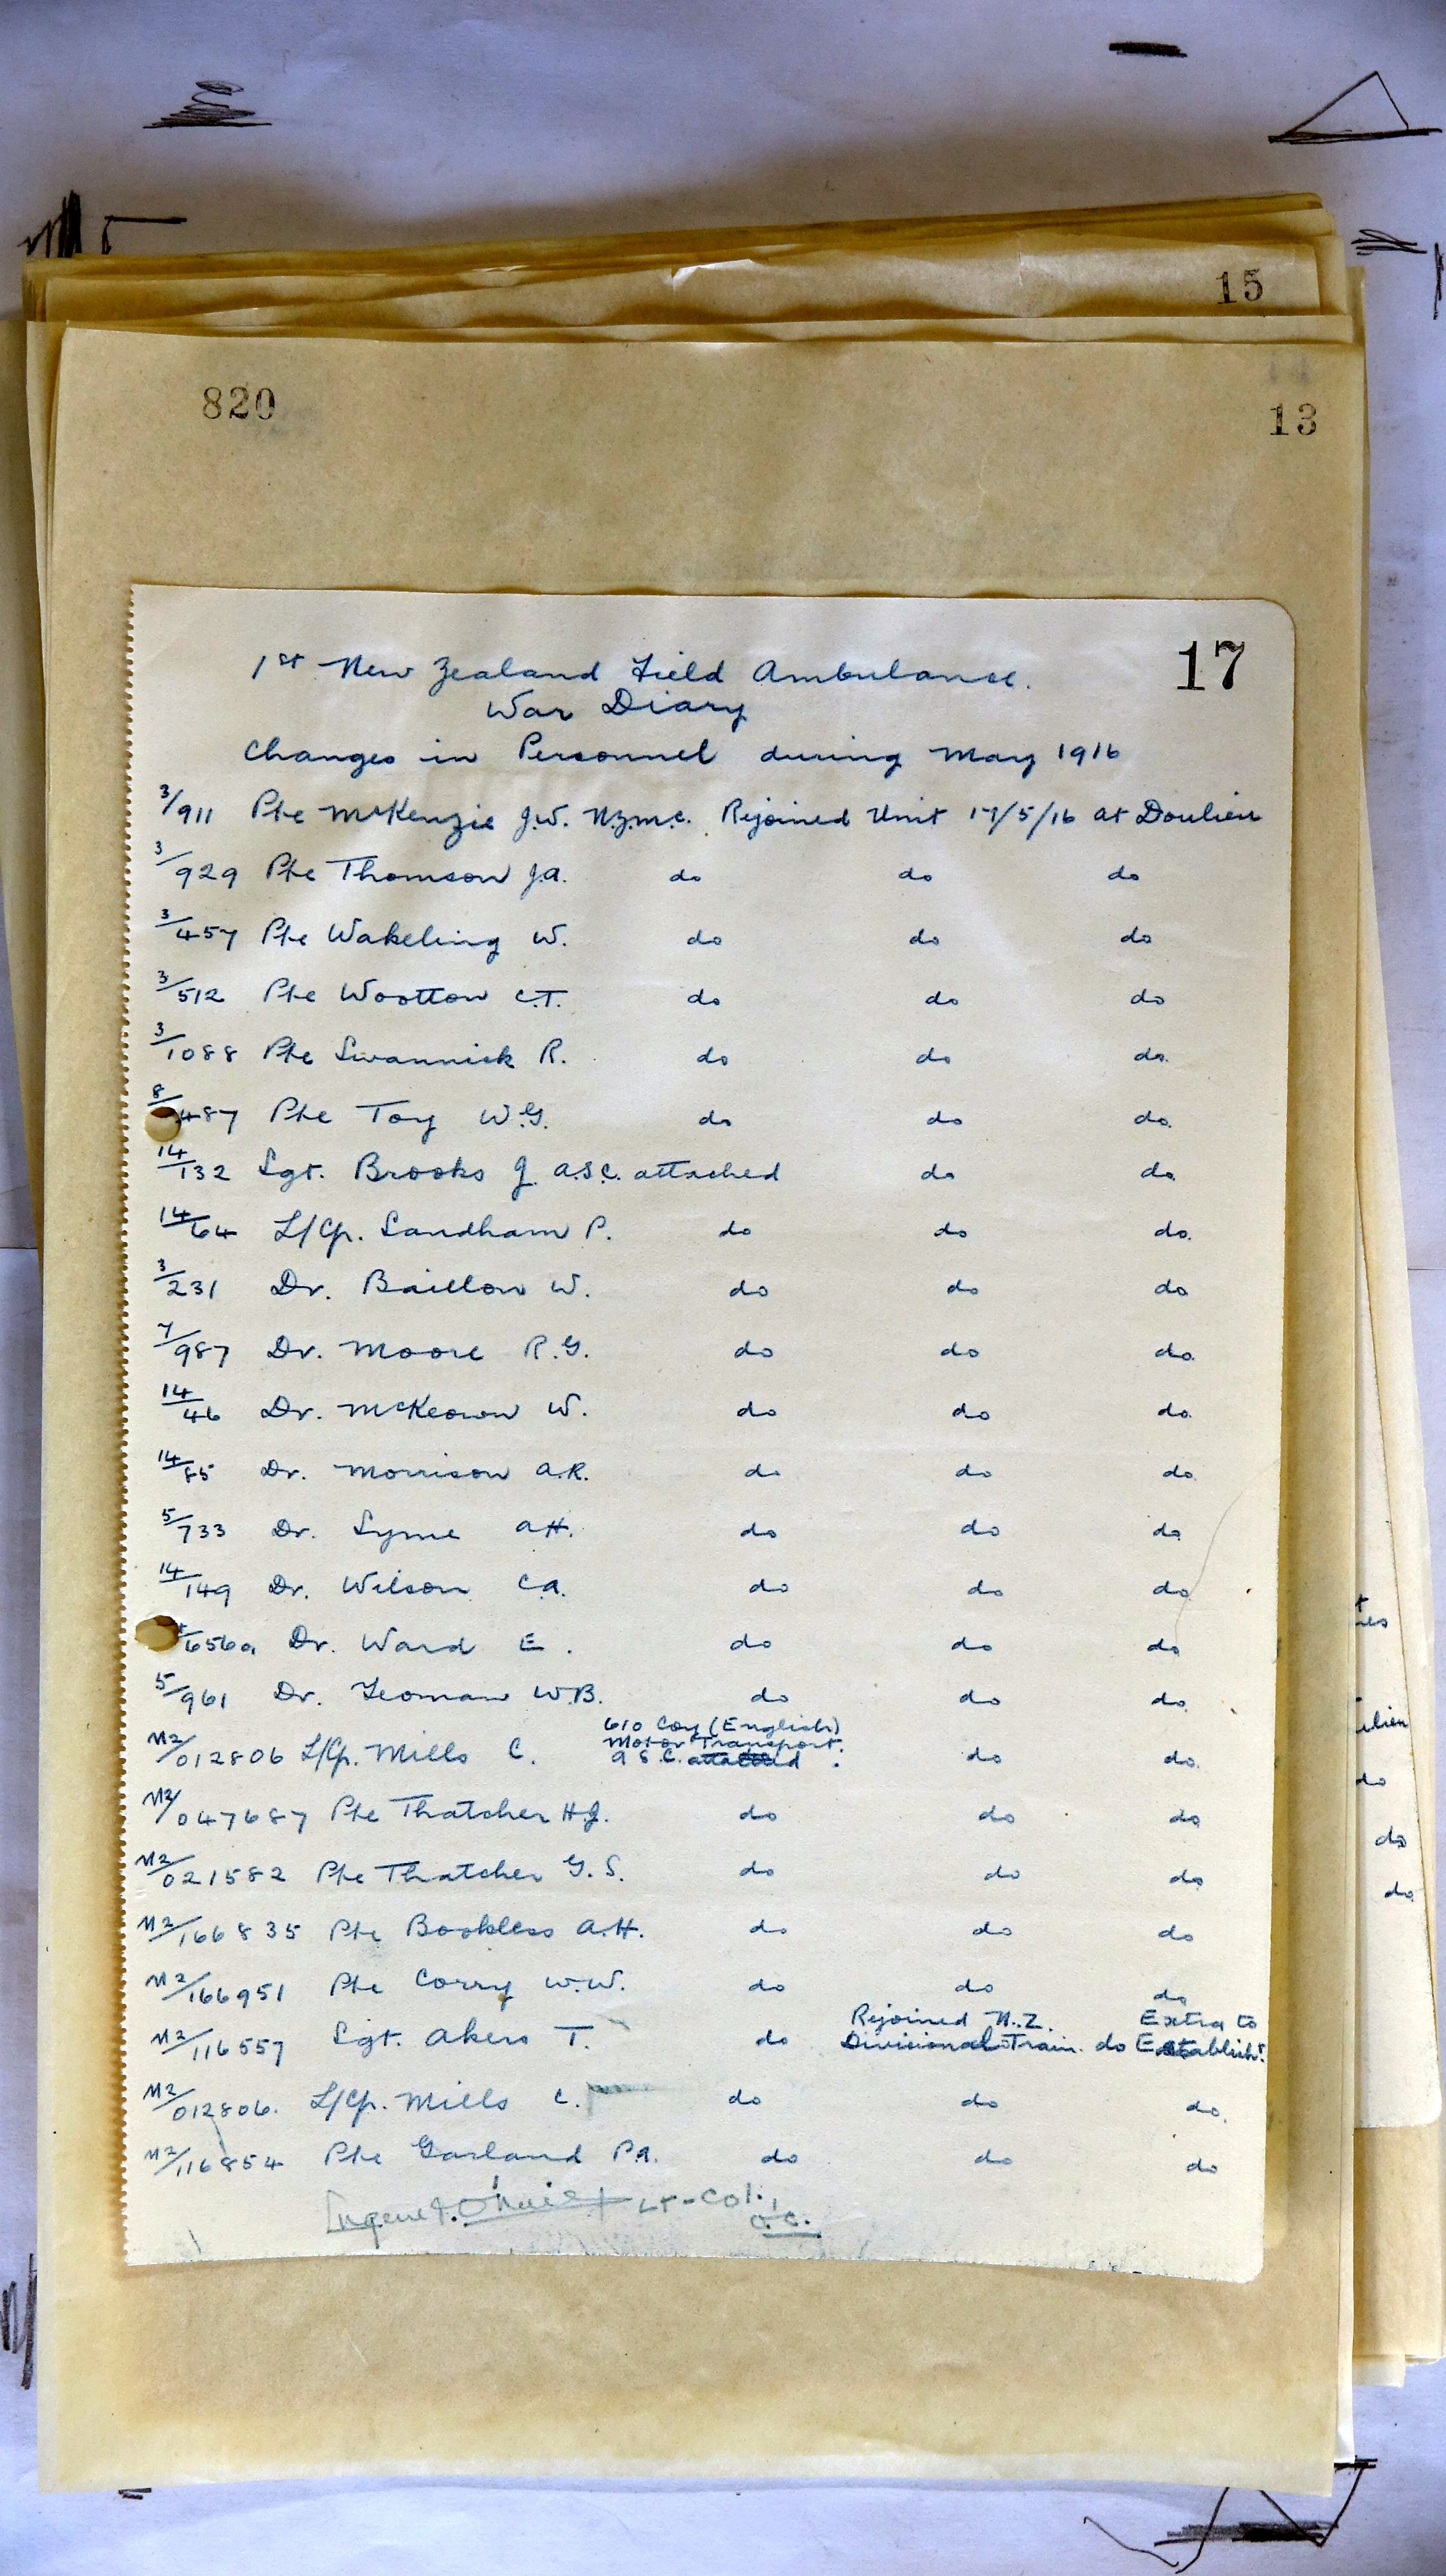 15
820
13
17
1st New Zealand Field Ambulance.
War Diary
Changes in Personnel during May 1916
3/911 Pte McKenzie J.W. N.Z.M.C. Rejoined Unit 17/5/16 at Doulieu
3/929 Pte Thomson J.A. do do do
3/457 Pte Wakeling W. do do do
3/512 Pte Wootton C.T. do do do
3/1088 Pte Swannick R. do do do.
8/487 Pte Toy W.G. do do do.
14/132 Sgt. Brooks J. A.S.C. attached do do.
14/64 L/Cp. Sandham P. do do do.
3/231 Dr. Baillon W. do do do
7/987 Dr. Moore R.G. do do do.
14/46 Dr. McKeown W. do do do.
14/85 Dr. Morrison A.R. do do do.
5/733 Dr. Syme A.H. do do do
14/149 Dr. Wilson C.A. do do do
/656a Dr. Ward E. do do do
5/961 Dr. Yeoman W.B. do do do.
610 Coy (English)
Motor Transport.
M2/012806 L/Cp. Mills C. A.S.C. attached. do do.
M2/047687 Pte Thatcher H.J. do do do
M2/021582 Pte Thatcher G.S. do do do
M2/166835 Pte Bookless A.H. do do do
M2/166951 Pte Corry W.W. do do do
Rejoined N.Z. Extra to
M2/116557 Sgt. Akers T. do Divisional Train. do Establisht.
M2/012806. L/Cp. Mills C. do do do.
M2/116854 Pte Garland P.A. do do do
Eugene J. O'Neill Lt-Col.,
O.C.
do
do
do